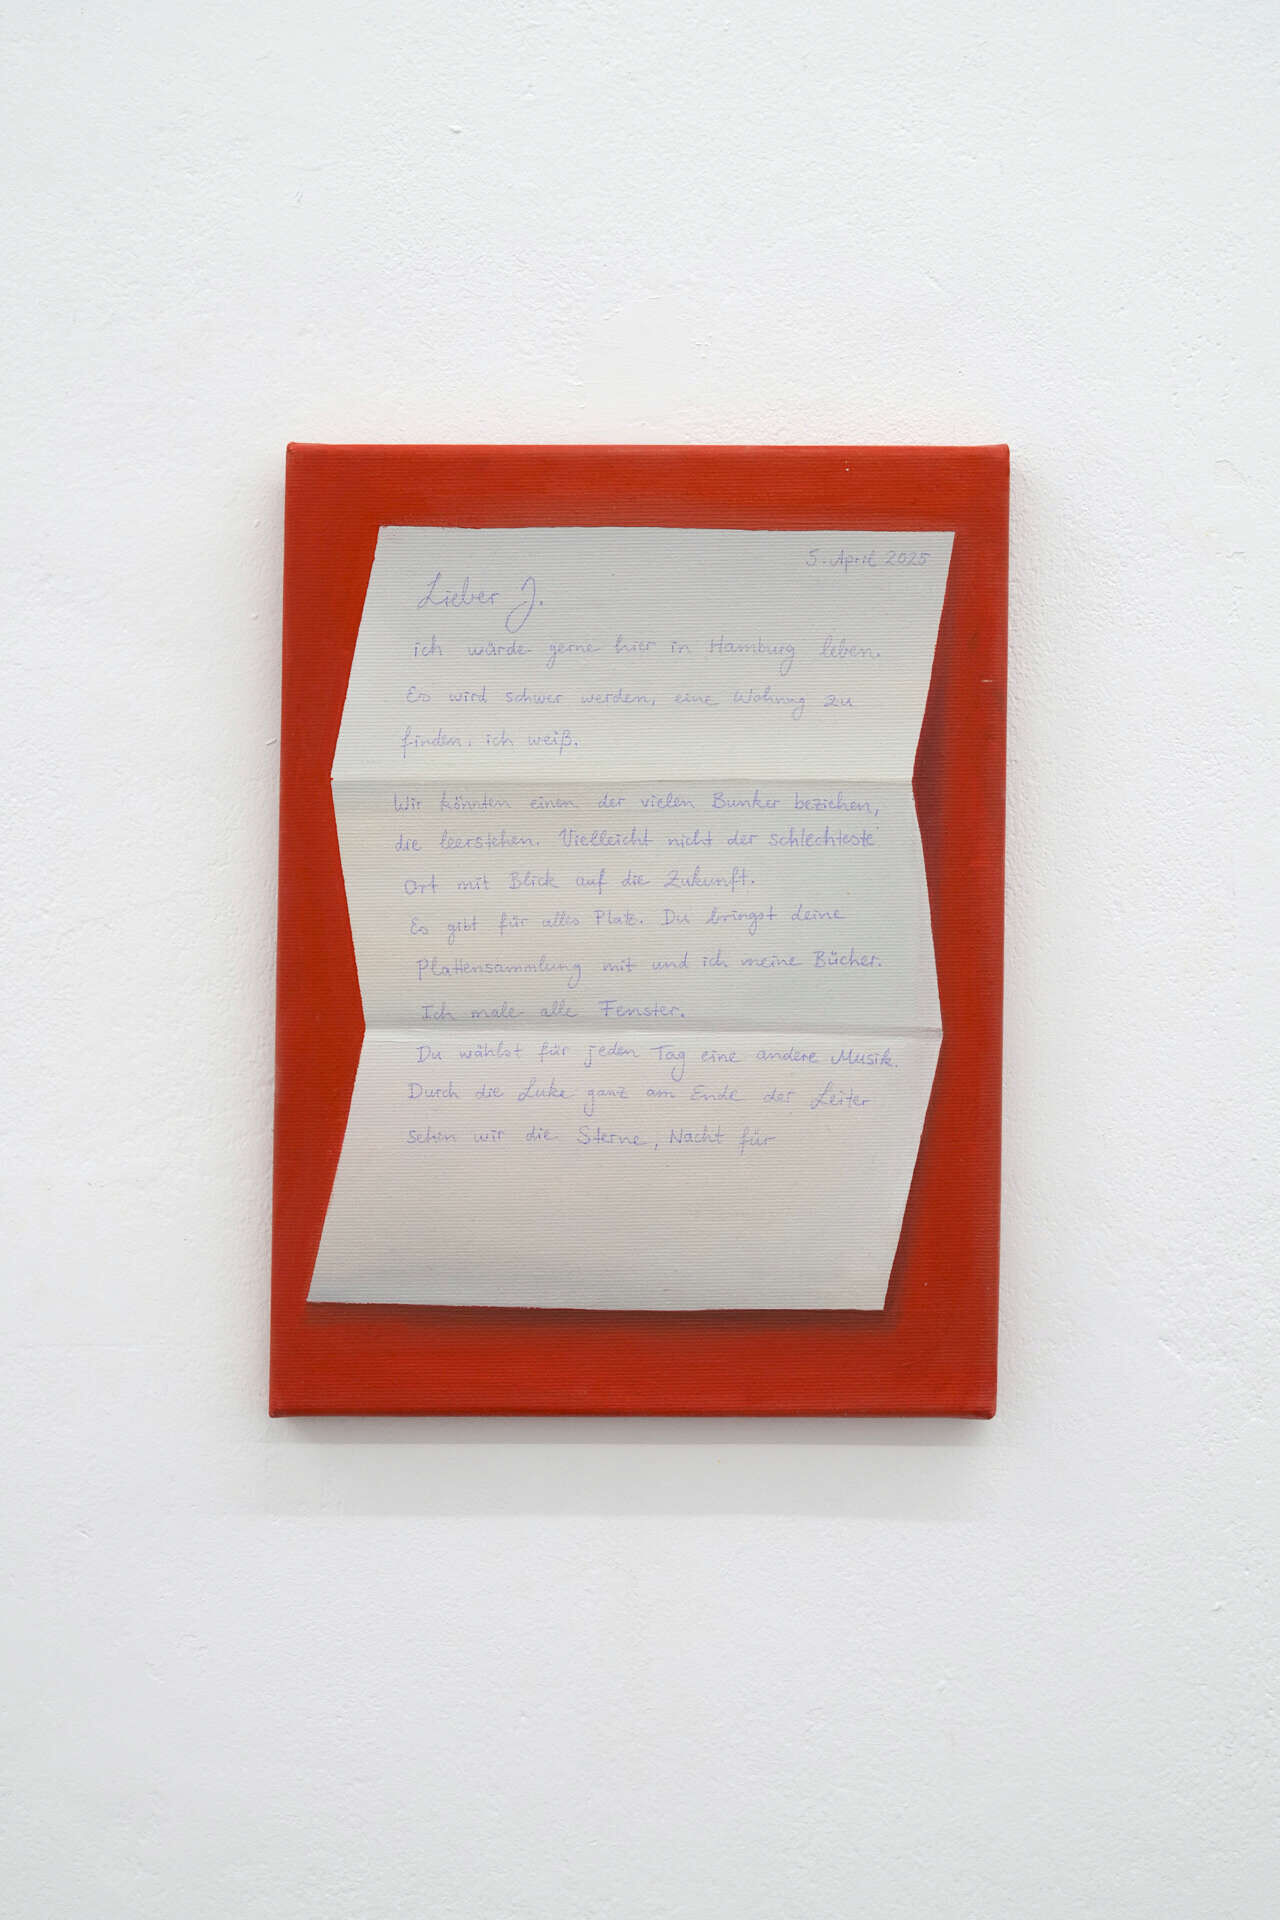 5. April 2025
Lieber J.
ich würde gerne hier in Hamburg leben.
Es wird schwer werden, eine Wohnung zu
finden, ich weiß.
Wir könnten einen der vielen Bunker beziehen,
die leerstehen. Vielleicht nicht der schlechteste
Ort mit Blick auf die Zukunft.
Es gibt für alles Platz. Du bringst deine
Plattensammlung mit und ich meine Bücher.
Ich male alle Fenster.
Du wählst für jeden Tag eine andere Musik.
Durch die Luke ganz am Ende der Leiter
sehen wir die Sterne, Nacht für